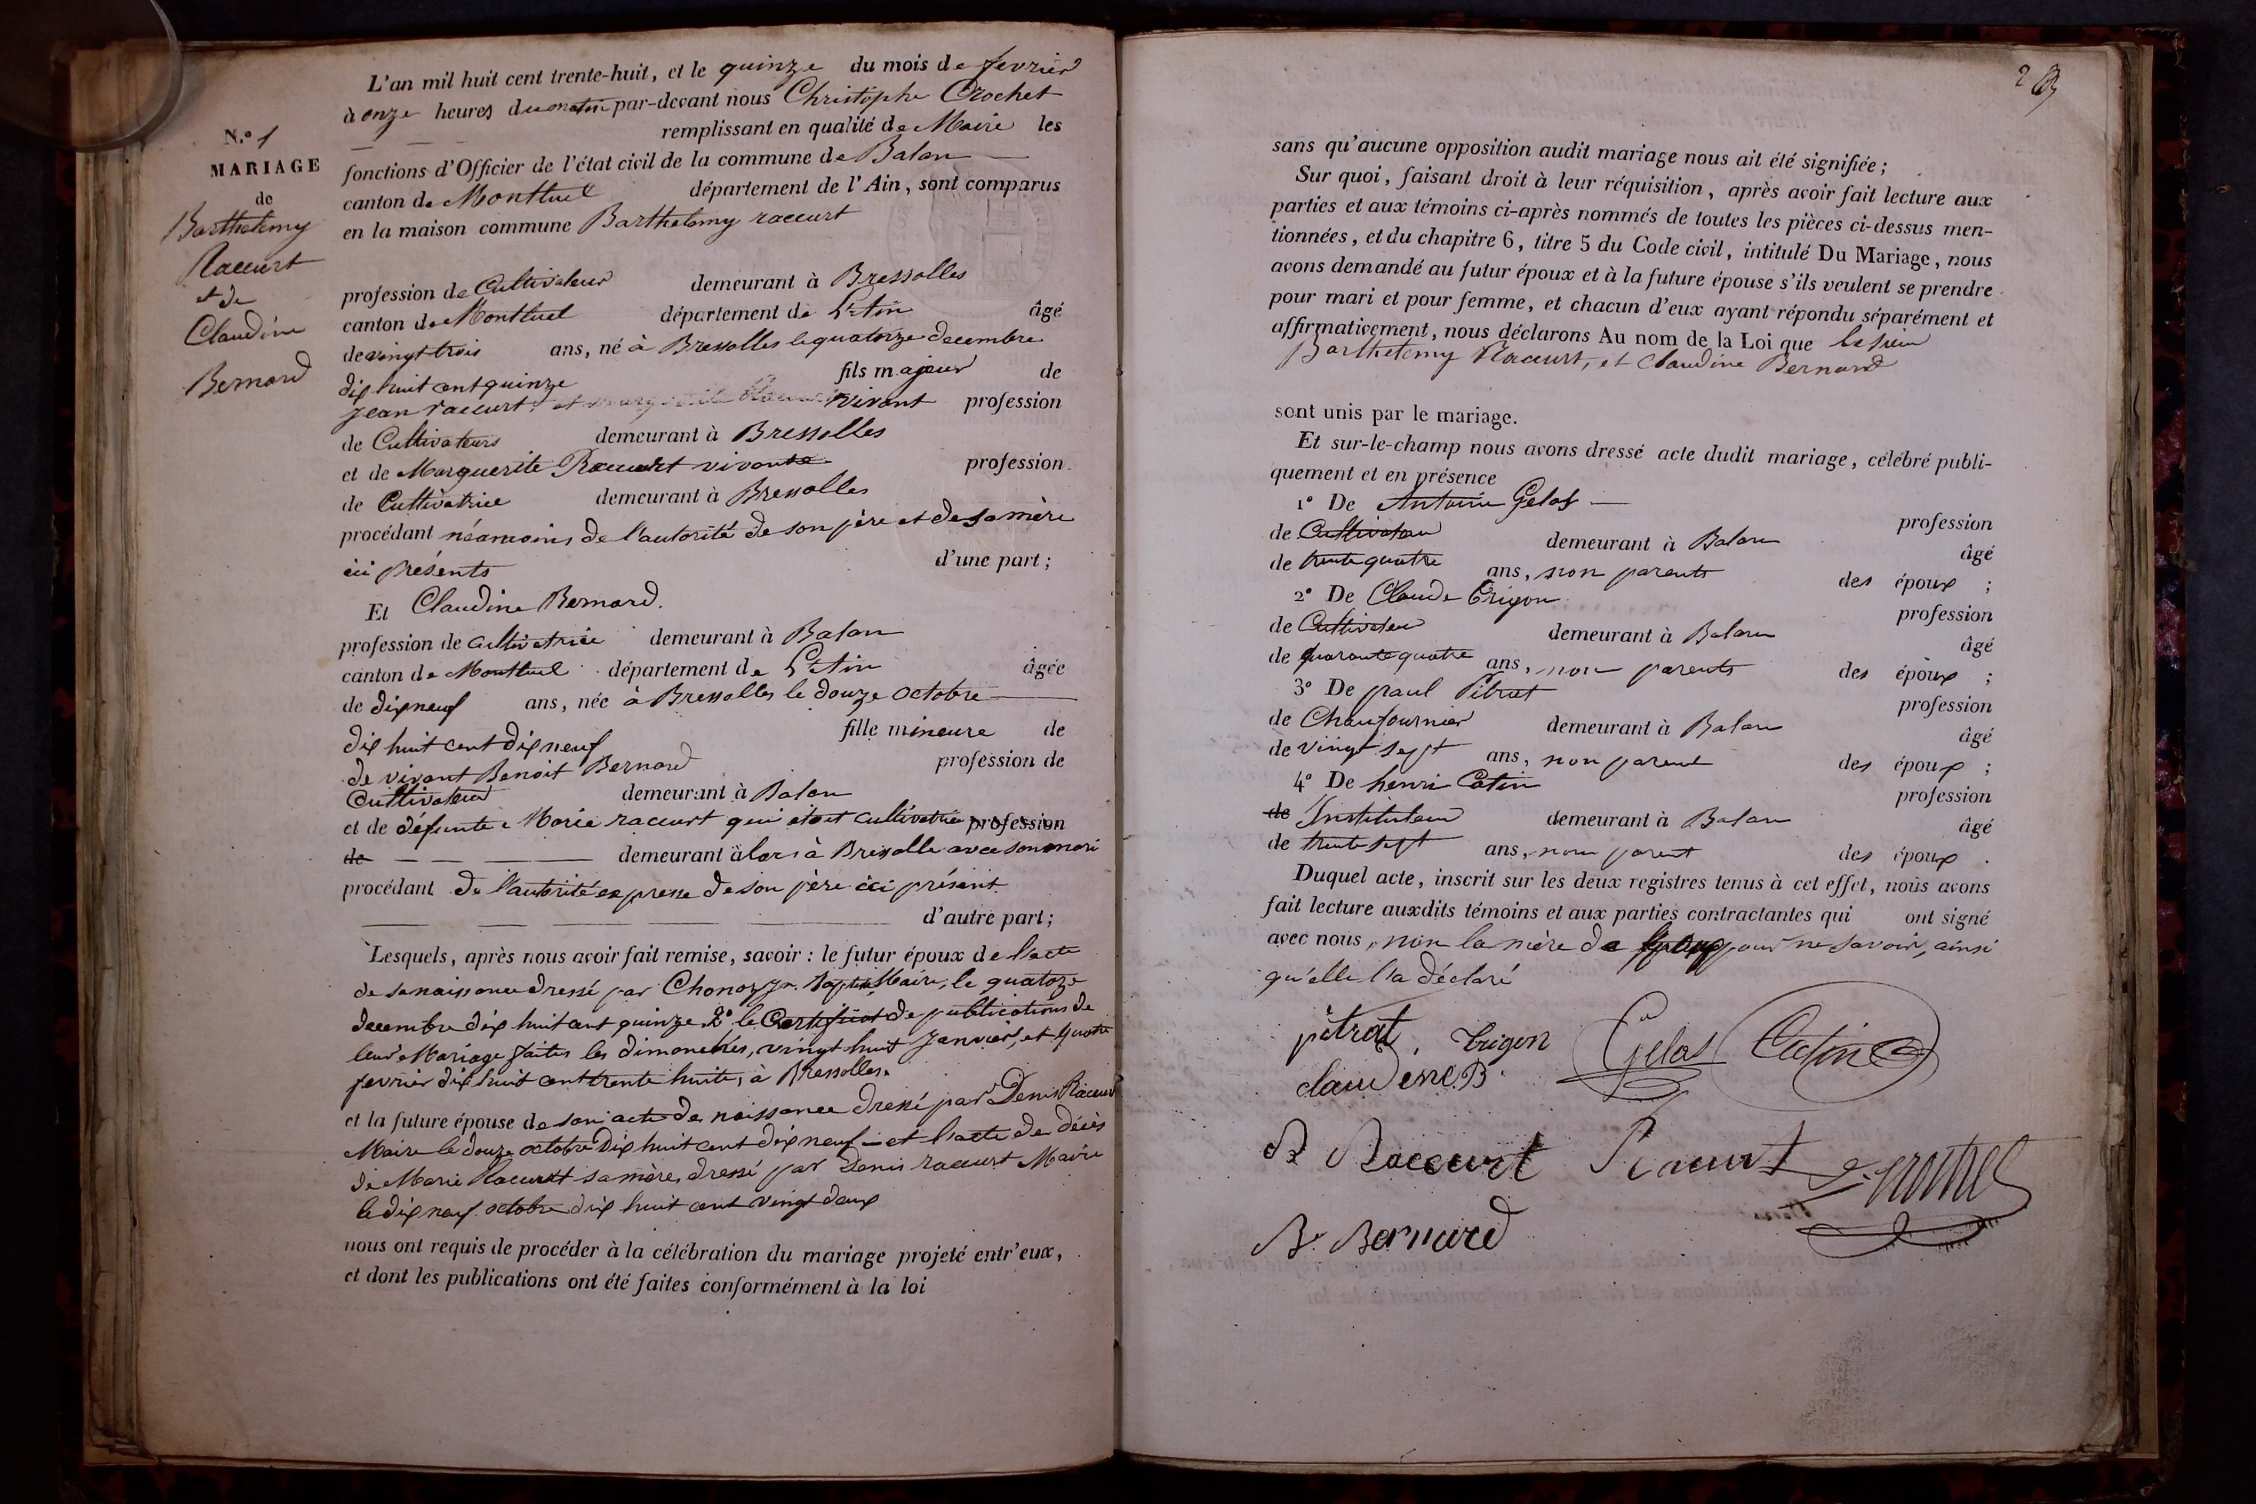 L'an mil huit cent trente-huit, et le quinze du mois de fevrier
à onze heures du matin par-devant nous Christophe Crochet
remplissant en qualité de Maire les
fonctions d'Officier de l'état civil de la commune de Balan
canton de Montluel département de l'Ain, sont comparus
en la maison commune Barthelemy raccurt
N.º 1
MARIAGE
de
Barthelemy
Raccurt
et de
Claudine
Bernard
profession de Cultivateur demeurant à Bressolles
canton de Montluel département de L'Ain âgé
de vingt trois ans, né à Bressolles le quatorze decembre
dix huit cent quinze fils majeur de
jean raccurt vivant profession
de Cultivateurs demeurant à Bressolles
et de Marguerite Raccurt vivante profession
de Cultivatrice demeurant à Bressolles
procédant néamoins de l'autorité de son père et de sa mère
ici présents d'une part;
Et Claudine Bernard.
profession de cultivatrice demeurant à Balan
canton de Montluel département de L'Ain âgée
de dix neuf ans, née à Bressolles le douze octobre
dix huit cent dix neuf fille mineure de
de vivant Benoit Bernard profession de
Cultivateur demeurant à Balan
et de défunte Marie raccurt qui étoit cultivatrice profession
de demeurant alors à Bressolle avec son mari
procédant de l'autorité expresse de son père ici présent
d'autre part;
Lesquels, après nous avoir fait remise, savoir : le futur époux de l'acte
de sa naissance dressé par Maire, le quatorze
decembre dix huit cent quinze 2° le Certificat de publications de
leur Mariage faites les dimanches, vingt huit janvier, et quatre
fevrier dix huit cent trente huite, à Bressolles.
et la future épouse de son acte de naissance dressé par Denis Raccurt
Maire le douze octobre dix huit cent dix neuf et l'acte de décès
de Marie Raccurt sa mère, dressé par Denis raccurt Maire
le dix neuf octobre dix huit cent vingt deux
nous ont requis de procéder à la célébration du mariage projeté entr'eux,
et dont les publications ont été faites conformément à la loi
sans qu'aucune opposition audit mariage nous ait été signifiée;
Sur quoi, faisant droit à leur réquisition, après avoir fait lecture aux
parties et aux témoins ci-après nommés de toutes les pièces ci-dessus men-
tionnées, et du chapitre 6, titre 5 du Code civil, intitulé Du Mariage, nous
avons demandé au futur époux et à la future épouse s'ils veulent se prendre
pour mari et pour femme, et chacun d'eux ayant répondu séparément et
affirmativement, nous déclarons Au nom de la Loi que
Barthelemy Raccurt, et Claudine Bernard
sont unis par le mariage.
Et sur-le-champ nous avons dressé acte dudit mariage, célébré publi-
quement et en présence
1° De Antoine Gelas profession
de Cultivateur demeurant à Balan âgé
de trente quatre ans, non parents des époux ;
2° De Claude Trigon profession
de Cultivateur demeurant à Balan âgé
de quarante quatre ans, non parents des époux ;
3° De paul Pitrat profession
de Chaufournier demeurant à Balan âgé
de vingt sept ans, non parent des époux ;
4° De henri Catin profession
de Instituteur demeurant à Balan âgé
de trente sept ans, non parent des époux .
Duquel acte, inscrit sur les deux registres tenus à cet effet, nous avons
fait lecture auxdits témoins et aux parties contractantes qui ont signé
avec nous, non la mère de pour ne savoir, ainsi
qu'elle l'a déclaré
pitrat, trigon Gelas Catin
claudene.B.
B Raccurt Raccurt Crochet
B. Bernard